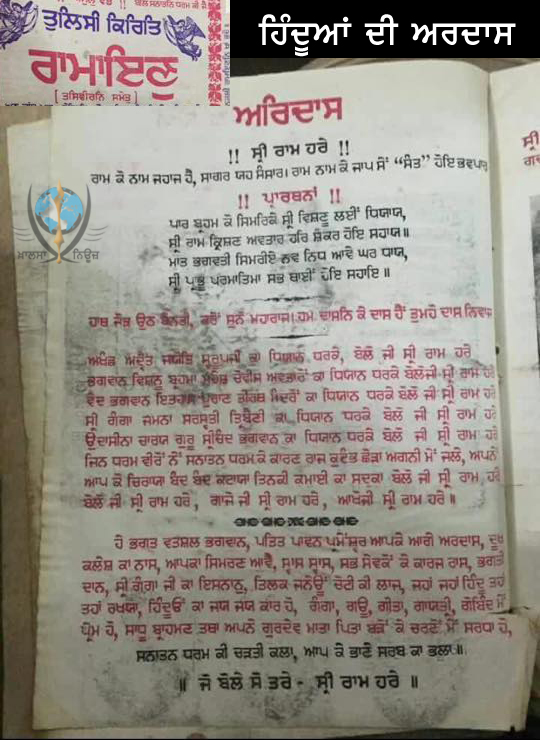 ਤੁਲਿਸੀ ਕਿਰਿਤਿ
ਰਾਮਾਇਣੁ
[ ਤਸਿਵੀਰਨਿ ਸਮੇਤੁ ]
ਹਿੰਦੂਆਂ ਦੀ ਅਰਦਾਸ
ਖਾਲਸਾ ਨਿਊਜ਼
ਅਰਿਦਾਸ
!! ਸ੍ਰੀ ਰਾਮ ਹਰੇ !!
ਰਾਮ ਕੋ ਨਾਮ ਜਹਾਜ ਹੈ, ਸਾਗਰ ਯਹ ਸੰਸਾਰ। ਰਾਮ ਨਾਮ ਕੇ ਜਾਪ ਸੋਂ “ਸੰਤ” ਹੋਇ ਭਵਪਾਰ
!! ਪ੍ਰਾਰਥਨਾਂ !!
ਪਾਰ ਬ੍ਰਹਮ ਕੋ ਸਿਮਰਿਕੈ ਸ੍ਰੀ ਵਿਸ਼ਣੂ ਲਈਂ ਧਿਯਾਯ,
ਸ੍ਰੀ ਰਾਮ ਕ੍ਰਿਸ਼ਣ ਅਵਤਾਰ ਹਰਿ ਸ਼ੰਕਰ ਹੋਇ ਸਹਾਯ॥
ਮਾਤ ਭਗਵਤੀ ਸਿਮਰੀਐ ਨਵ ਨਿਧ ਆਵੈ ਘਰ ਧਾਯ,
ਸ੍ਰੀ ਪ੍ਰਭੂ ਪਰਮਾਤਿਮਾ ਸਭ ਥਾਈਂ ਹੋਇ ਸਹਾਇ॥
ਹਾਥ ਜੋੜ ਉਠ ਬੇਨਤੀ, ਕਰੋਂ ਸੁਨੋ ਮਹਰਾਜ। ਹਮ ਦਾਸਨਿ ਕੇ ਦਾਸ ਹੈਂ ਤੁਮਹੋ ਦਾਸ ਨਿਵਾਜ
ਅਖੰਡ ਅਦ੍ਵੈਤ ਜਯੋਤਿ ਸਰੂਪਜੀ ਕਾ ਧਿਯਾਨ ਧਰਕੇ, ਬੋਲੋ ਜੀ ਸ੍ਰੀ ਰਾਮ ਹਰੇ
ਭਗਵਾਨ ਵਿਸ਼ਨੂ ਬ੍ਰਹਮਾ ਚੌਵੀਸ ਅਵਤਾਰੋਂ ਕਾ ਧਿਯਾਨ ਧਰਕੇ ਬੋਲੋਜੀ ਸ੍ਰੀ ਰਾਮ ਹਰੇ
ਵੇਦ ਭਗਵਾਨ ਇਤਹਾਸ ਪੁਰਾਣ ਤੀਰਥ ਮੰਦਿਰੋਂ ਕਾ ਧਿਯਾਨ ਧਰਕੇ ਬੋਲੋ ਜੀ ਸ੍ਰੀ ਰਾਮ ਹਰੇ
ਸ੍ਰੀ ਗੰਗਾ ਜਮਨਾ ਸਰਸ੍ਵਤੀ ਤ੍ਰਿਬੈਣੀ ਕਾ ਧਿਯਾਨ ਧਰਕੇ ਬੋਲੋ ਜੀ ਸ੍ਰੀ ਰਾਮ ਹਰੇ
ਉਦਾਸੀਨਾ ਚਾਰਯ ਗੁਰੂ ਸ੍ਰੀਚੰਦ ਭਗਵਾਨ ਕਾ ਧਿਯਾਨ ਧਰਕੇ ਬੋਲੋ ਜੀ ਸ੍ਰੀ ਰਾਮ ਹਰੇ
ਜਿਨ ਧਰਮ ਵੀਰੋਂ ਨੇਂ ਸਨਾਤਨ ਧਰਮ ਕੇ ਕਾਰਣ ਰਾਜ ਕੁਟੰਭ ਛੋੜਾ ਅਗਨੀ ਮੇਂ ਜਲੇ, ਅਪਨੇ
ਆਪ ਕੋ ਚਿਰਾਯਾ ਬੰਦ ਬੰਦ ਕਟਾਯਾ ਤਿਨਕੀ ਕਮਾਈ ਕਾ ਸਦਕਾ ਬੋਲੋ ਜੀ ਸ੍ਰੀ ਰਾਮ ਹਰੇ
ਬੋਲੋ ਜੀ ਸ੍ਰੀ ਰਾਮ ਹਰੇ, ਗਾਜੋ ਜੀ ਸ੍ਰੀ ਰਾਮ ਹਰੇ, ਆਖੋਜੀ ਸ੍ਰੀ ਰਾਮ ਹਰੇ॥
ਹੇ ਭਗਤ ਵਤਸ਼ਲ ਭਗਵਾਨ, ਪਤਿਤ ਪਾਵਨ ਪ੍ਰਮੇਸ਼੍ਵਰ ਆਪਕੇ ਆਗੇ ਅਰਦਾਸ, ਦੂਖ
ਕਲੇਸ਼ ਕਾ ਨਾਸ, ਆਪਕਾ ਸਿਮਰਣ ਆਵੈ, ਸ੍ਵਾਸ ਸ੍ਵਾਸ, ਸਭ ਸੇਵਕੋਂ ਕੇ ਕਾਰਜ ਰਾਸ, ਭਗਤੀ
ਦਾਨ, ਸ੍ਰੀ ਗੰਗਾ ਜੀ ਕਾ ਇਸਨਾਨੁ, ਤਿਲਕ ਜਨੇਊਂ ਚੋਟੀ ਕੀ ਲਾਜ, ਜਹਾਂ ਜਹਾਂ ਹਿੰਦੂ ਤਹਾਂ
ਤਹਾਂ ਰਖਯਾ, ਹਿੰਦੂਓਂ ਕਾ ਜਯ ਜਯ ਕਾਰ ਹੋ, ਗੰਗਾ, ਗਊ, ਗੀਤਾ, ਗਾਯਤ੍ਰੀ, ਗੋਬਿੰਦ ਮੇਂ
ਪ੍ਰੇਮ ਹੋ, ਸਾਧੂ ਬ੍ਰਾਹਮਣ ਤਥਾ ਅਪਨੇ ਗੁਰਦੇਵ ਮਾਤਾ ਪਿਤਾ ਬੜੋਂ ਕੇ ਚਰਣੋਂ ਮੇਂ ਸਰਧਾ ਹੋ,
ਸਨਾਤਨ ਧਰਮ ਕੀ ਚੜਤੀ ਕਲਾ, ਆਪ ਕੇ ਭਾਣੇ ਸਰਬ ਕਾ ਭਲਾ॥
॥ ਜੋ ਬੋਲੇ ਸੋ ਤਰੇ - ਸ੍ਰੀ ਰਾਮ ਹਰੇ ॥